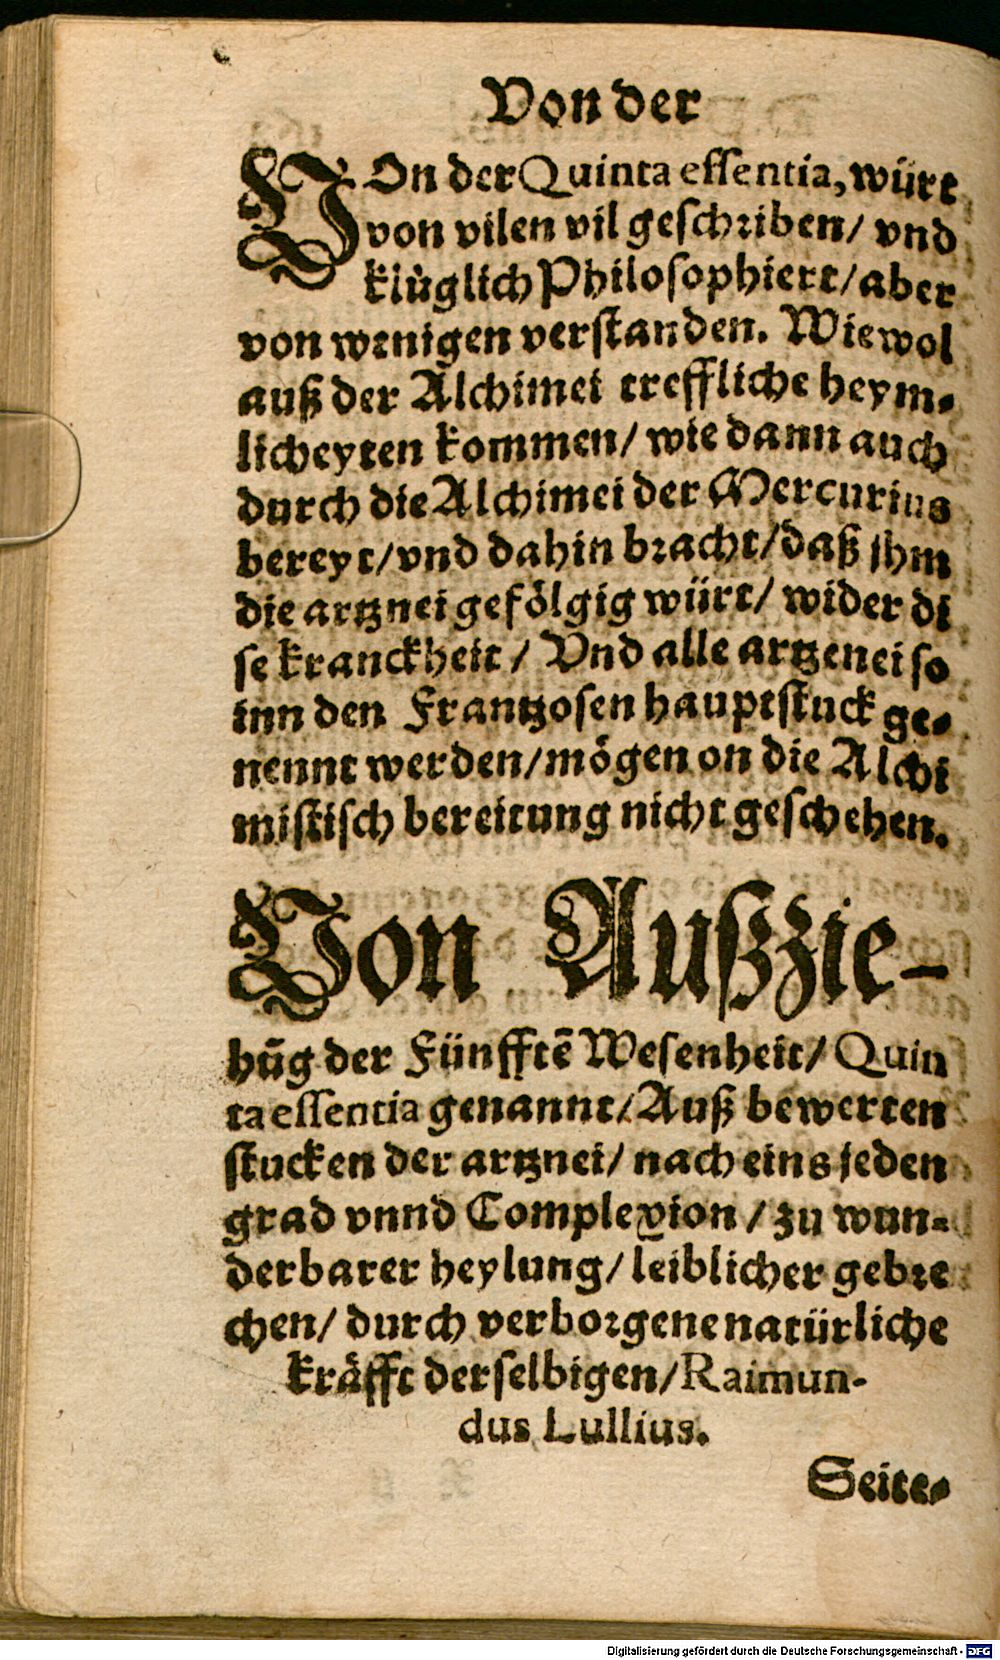 Von der
VOn der Quinta essentia, würt
von vilen vil geschriben/ vnd
klůglich Philosophiert/ aber
von wenigen verstanden. Wiewol
auß der Alchimei treffliche heym⸗
licheyten kommen/ wie dann auch
durch die Alchimei der Mercurius
bereyt/ vnd dahin bracht/ daß jhm
die artznei gefölgig würt/ wider di
se kranckheit/ Vnd alle artzenei so
inn den Frantzosen hauptstuck ge⸗
nennt werden/ mögen on die Alchi
mistisch bereitung nicht geschehen.
Von Außzie-
hūg der Fünfftē Wesenheit/ Quin
ta essentia genannt/ Auß bewerten
stucken der artznei/ nach eins jeden
grad vnnd Complexion/ zu wun⸗
derbarer heylung/ leiblicher gebre
chen/ durch verborgene natürliche
kräfft derselbigen/ Raimun-
dus Lullius.
Seite⸗
Digitalisierung gefördert durch die Deutsche Forschungsgemeinschaft - DFG